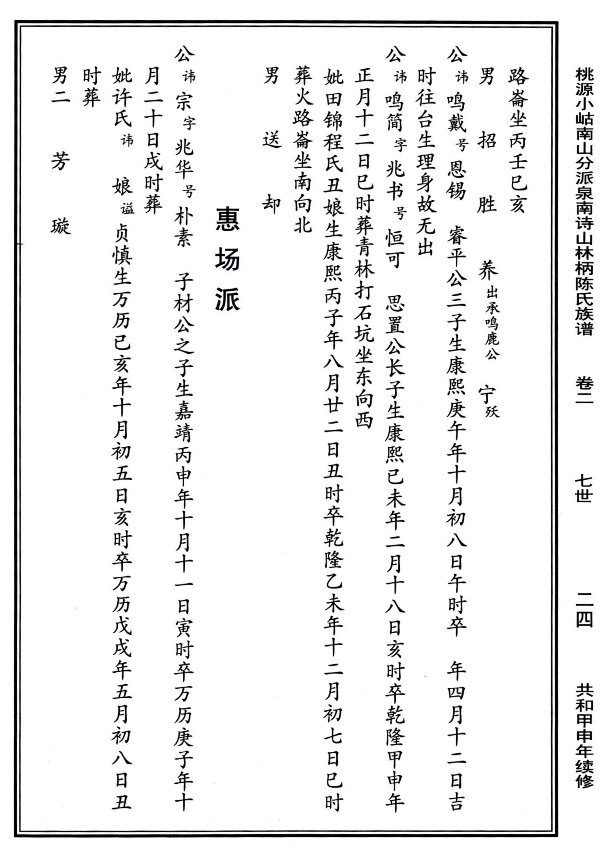 桃源小岵南山分派泉南诗山林柄陈氏族谱 卷二 七世 二四 共和甲申年续修
路崙坐丙壬巳亥
男 招 胜 养出承鸣鹿公 宁殀
公讳鸣戴号恩锡 睿平公三子生康熙庚午年十月初八日午时卒 年四月十二日吉
时往台生理身故无出
公讳鸣简字兆书号恒可 思置公长子生康熙已未年二月十八日亥时卒乾隆甲申年
正月十二日巳时葬青林打石坑坐东向西
妣田锦程氏丑娘生康熙丙子年八月廿二日丑时卒乾隆乙未年十二月初七日巳时
葬火路崙坐南向北
男 送 却
惠场派
公讳宗字兆华号朴素 子材公之子生嘉靖丙申年十月十一日寅时卒万历庚子年十
月二十日戌时葬
妣许氏讳 娘谥贞慎生万历已亥年十月初五日亥时卒万历戊戌年五月初八日丑
时葬
男二 芳 璇